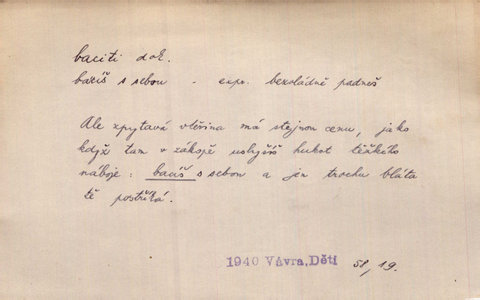 baciti dok.
bacíš s sebou - expr. bezvládně padneš
Ale zpytavá vteřina má stejnou cenu, jako
když tam v zákopě uslyšíš hukot těžkého
náboje: bacíš s sebou a jen trochu bláta
tě postříká.
1940 Vávra, Děti 58, 19.